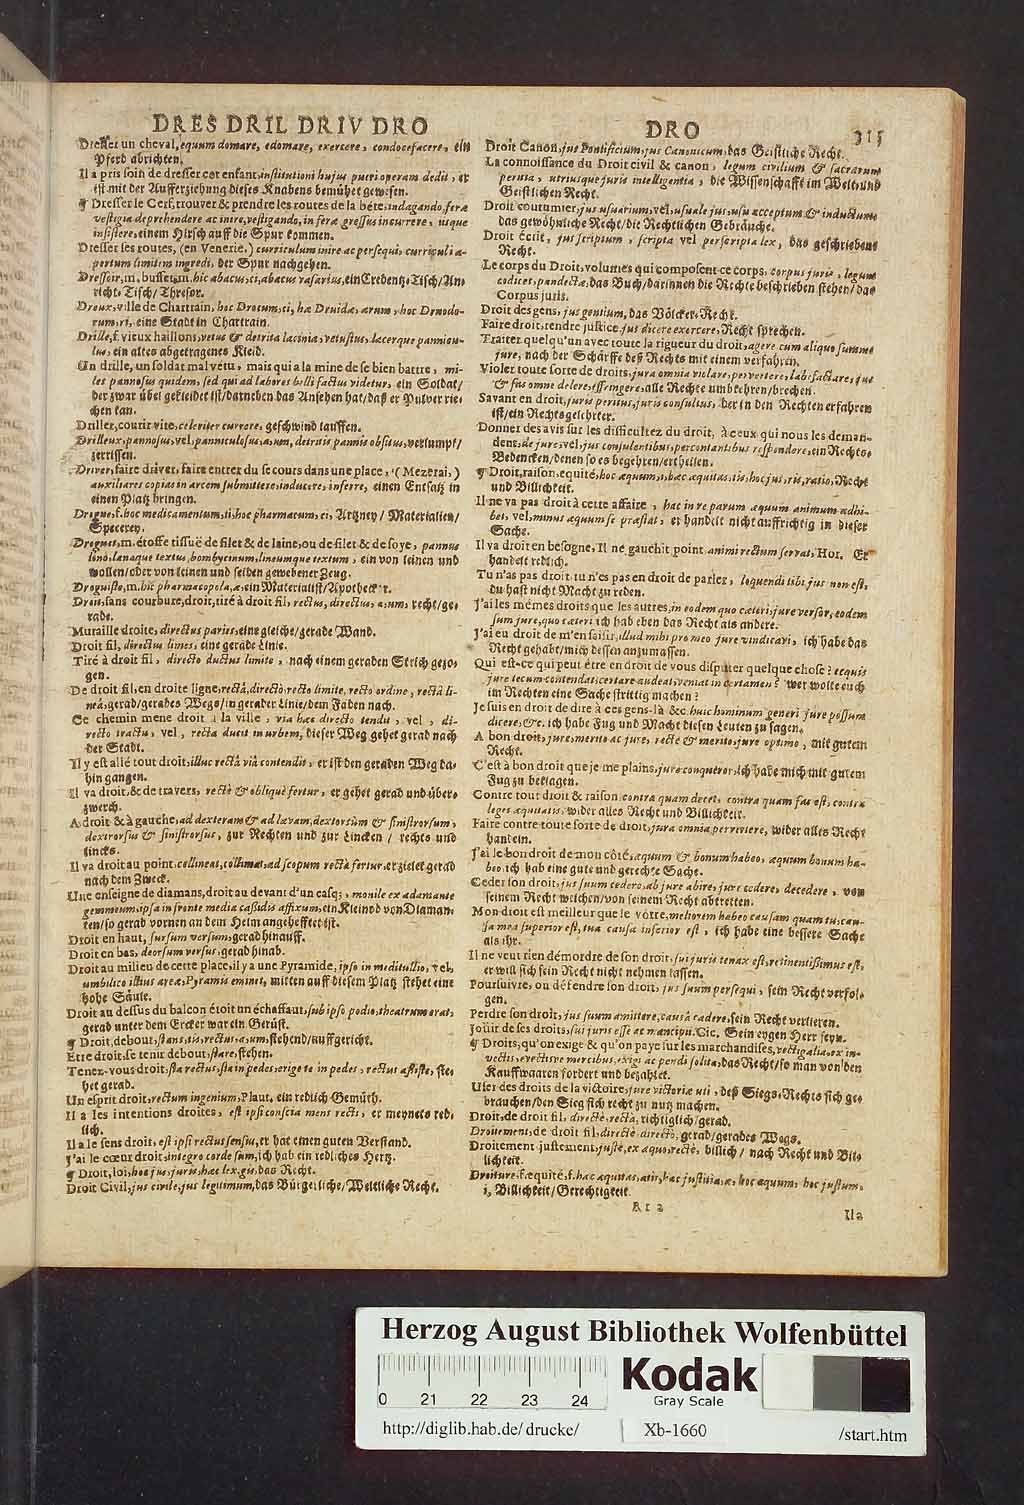 DRES DRIL DRIV DRO
Dresser un cheval, equum domare, edomare, exercere, condocefacere, ein
Pferd abrichten.
Il a pris soin de dresser cet enfant, institutioni hujus pueri operam dedit, er
ist mit der Aufferziehung dieses Knabens bemühet gewesen.
¶ Dresser le Cerf, trouver & prendre les routes de la bête, indagando, feræ
vestigia deprehendere ac inire, vestigando, in feræ gressus incurrere, iisque
insistere, einem Hirsch auff die Spur kommen.
Dresser ses routes, (en Venerie,) curriculum inire ac persequi, curriculi a-
pertum limitem ingredi, der Spur nachgehen.
Dressoir, m. buffet, m. hic abacus, ci, abacus vasarius, ein Credentz-Tisch/An-
richt-Tisch/Thresor.
Dreux, ville de Chartrain, hoc Drocum, ci, hæ Druidæ, arum, hoc Drnodo-
rum, ri, eine Stadt in Chartrain.
Drille, f. vieux haillons, vetus & detrita lacinia, vetustus, lacerque pannicu-
lus, ein altes abgetragenes Kleid.
Un drille, un soldat mal vétu, mais qui a la mine de se bien battre, mi-
les pannosus quidem, sed qui ad labores belli factus videtur, ein Soldat/
der zwar übel gekleidet ist/darneben das Ansehen hat/daß er Pulver rie-
chen kan.
Driller, courir vite, celeriter currere, geschwind lauffen.
Drilleux, pannosus, vel, panniculosus, a, um, detritis pannis obsitus, verlumpt/
zerrissen.
Driver, faire driver, faire entrer du secours dans une place, (Mezerai,)
auxiliares copias in arcem submittere, inducere, inferre, einen Entsatz in
einen Platz bringen.
Drogue, f. hoc medicamentum, ti, hoc pharmacum, ci, Artzney/Materialien/
Specerey.
Droguet, m. étoffe tissuë de filet & de laine, ou de filet & de soye, pannus
lino, lanaque textus, bombycinum, lineumque textum, ein von leinen und
wollen/oder von leinen und seiden gewebener Zeug.
Droguiste, m. hic pharmacopola, æ, ein Materialist/Apothecker.
Droit, sans courbure, droit, tiré à droit fil, rectus, directus, a, um, recht/ge-
rade.
Muraille droite, directus paries, eine gleiche/gerade Wand.
Droit fil, directus limes, eine gerade Linie.
Tiré à droit fil, directo ductus limite, nach einem geraden Strich gezo-
gen.
De droit fil, en droite ligne, rectâ, directò, recto limite, recto ordine, rectâ li-
neâ, gerad/gerades Wegs/in gerader Linie/dem Faden nach.
Ce chemin mene droit à la ville, via hæc directo tendit, vel, di-
recto tractu, vel, recta ducit in urbem, dieser Weg gehet gerad nach
der Stadt.
Il y est allé tout droit, illuc rectâ viâ contendit, er ist den geraden Weg da-
hin gangen.
Il va droit, & de travers, rectè & obliquè fertur, er gehet gerad und über-
zwerch.
A droit & à gauche, ad dexteram & ad lævam, dextorsùm & sinistrorsum,
dextrorsus & sinistrorsus, zur Rechten und zur Lincken/rechts und
lincks.
Il va droit au point, collineat, collimat, ad scopum rectâ fertur, er zielet gerad
nach dem Zweck.
Une enseigne de diamans, droit au devant d'un casq;, monile ex adamante
gemmeum, ipsa in fronte media cassidis affixum, ein Kleinod von Diaman-
ten/so gerad vornen an dem Helm angehefftet ist.
Droit en haut, sursum versum, gerad hinauff.
Droit en bas, deorsum versus, gerad hinab.
Droit au milieu de cette place, il y a une Pyramide, ipso in meditullio, vel,
umbilico illius areæ, Pyramis eminet, mitten auff diesem Platz stehet eine
hohe Säule.
Droit au dessus du balcon étoit un échaffaut, sub ipso podio, theatrum erat,
gerad unter dem Ercker war ein Gerüst.
¶ Droit, debout, stans, tis, rectus, a, um, stehend/auffgericht.
Etre droit, se tenir debout, stare, stehen.
Tenez-vous droit, sta rectus, sta in pedes, erige te in pedes, rectus assiste, ste-
het gerad.
Un esprit droit, rectum ingenium, Plaut. ein redlich Gemüth.
Il a les intentions droites, est ipsi conscia mens recti, er meynets red-
lich.
Il a le sens droit, est ipsi rectus sensus, er hat einen guten Verstand.
J'ai le cœur droit, integro corde sum, ich hab ein redliches Hertz.
¶ Droit, loi, hoc jus, juris, hæc lex, gis, das Recht.
Droit Civil, jus civile, jus legitimum, das Bürgerliche/Weltliche Recht.
DRO
315
Droit Canon, jus Pontificium, jus Canonicum, das Geistliche Recht.
La connoissance du Droit civil & canon, legum civilium & sacrarum
peritia, utriusque juris intelligentia, die Wissenschafft im Welt- und
Geistlichen Recht.
Droit coutumier, jus usuarium, vel, usuale jus, usu acceptum & inductum
das gewöhnliche Recht/die Rechtlichen Gebräuche.
Droit Ecrit, jus scriptum, scripta vel perscripta lex, das geschriebene
Recht.
Le corps du Droit, volumes qui composent ce corps, corpus juris, legum
codices, pandectæ, das Buch/darinnen die Rechte beschrieben stehen/das
Corpus juris.
Droit des gens, jus gentium, das Völcker-Recht.
Faire droit, rendre justice, jus dicere exercere, Recht sprechen.
Traiter quelqu'un avec toute la rigueur du droit, agere cum aliquo summo
jure, nach der Schärffe deß Rechts mit einem verfahren.
Violer toute sorte de droits, jura omnia violare, pervertere, labefactare, jus
& fas omne delere, effringere, alle Rechte umbkehren/brechen.
Savant en droit, juris peritus, juris consultus, der in den Rechten erfahren
ist/ein Rechtsgelehrter.
Donner des avis sur les difficultez du droit, à ceux qui nous les deman-
dent, de jure, vel, jus consulentibus, percontantibus respondere, ein Rechts-
Bedencken/denen so es begehren/ertheilen.
¶ Droit, raison, equité, hoc æquum, i, hæc æquitas, tis, hoc jus, ris, ratio, Recht
und Billichkeit.
Il ne va pas droit à cette affaire, hac in re parum æquum animum adhi-
bet, vel, minus æquum se præstat, er handelt nicht auffrichtig in dieser
Sache.
Il va droit en besogne, Il ne gauchit point, animi rectum servat, Hor. Er
handelt redlich.
Tu n'as pas droit, tu n'es pas en droit de parler, loquendi tibi jus non est,
du hast nicht Macht zu reden.
J'ai les mémes droits que les autres, in eodem quo cæteri, jure versor, eodem
sum jure, quo cæteri, ich hab eben das Recht als andere.
J'ai eu droit de m'en saisir, illud mihi pro meo jure vindicavi, ich habe das
Recht gehabt/mich dessen anzumassen.
Qui est-ce qui peut étre en droit de vous disputer quelque chose? ecquis
jure tecum contendat, certare audeat, veniat in certamen? wer wolte euch
im Rechten eine Sache strittig machen?
Je suis en droit de dire à ces gens-là &c. huic hominum generi jure possum
dicere, &c. ich habe Fug und Macht diesen Leuten zu sagen.
A bon droit, jure, merito ac jure, rectè & merito, jure optimo, mit gutem
Recht.
C'est à bon droit que je me plains, jure conqueror, ich habe mich mit gutem
Fug zu beklagen.
Contre tout droit & raison, contra quam decet, contra quam fas est, contra
leges æquitatis, wider alles Recht und Billichkeit.
Faire contre toute sorte de droit, jura omnia pervertere, wider alles Recht
handeln.
J'ai le bon droit de mon côté, æquum & bonum habeo, æquum bonum ha-
beo, ich hab eine gute und gerechte Sache.
Ceder son droit, jus suum cedere, ab jure abire, jure cedere, decedere, von
seinem Recht weichen/von seinem Recht abtretten.
Mon droit est meilleur que le vôtre, meliorem habeo causam quam tu, cau-
sa mea superior est, tua causa inferior est, ich habe eine bessere Sache
als ihr.
Il ne veut rien démordre de son droit, sui juris tenax est, retinentissimus est,
er will sich sein Recht nicht nehmen lassen.
Poursuivre, ou défendre son droit, jus suum persequi, sein Recht verfol-
gen.
Perdre son droit, jus suum amittere, causâ cadere, sein Recht verlieren.
Joüir de ses droits, sui juris esse ac mancipii. Cic. Sein eygen Herr seyn.
¶ Droits, qu'on exige & qu'on paye sur les marchandises, vectigalia, ex in-
vectis, evectisve mercibus, exigi ac pendi solita, das Recht/so man von den
Kauffwaaren fordert und bezahlet.
User des droits de la victoire, jure victoriæ uti, deß Siegs-Rechts sich ge-
brauchen/den Sieg sich recht zu nutz machen.
Droit, de droit fil, directè, rectà, richtiglich/gerad.
Droitement, de droit fil, directè directò, gerad/gerades Wegs.
Droitement, justement, justè, ex æquo, rectè, billich/nach Recht und Bil-
lichkeit.
Droiture, f. æquité, f. hæc æquitas, atis, hæc justitia, æ, hoc æquum, hoc justum,
i, Billichkeit/Gerechtigkeit.
Rr 2
Ila
Herzog August Bibliothek Wolfenbüttel
0 21 22 23 24
Kodak
Gray Scale
http://diglib.hab.de/drucke/ Xb-1660 /start.htm